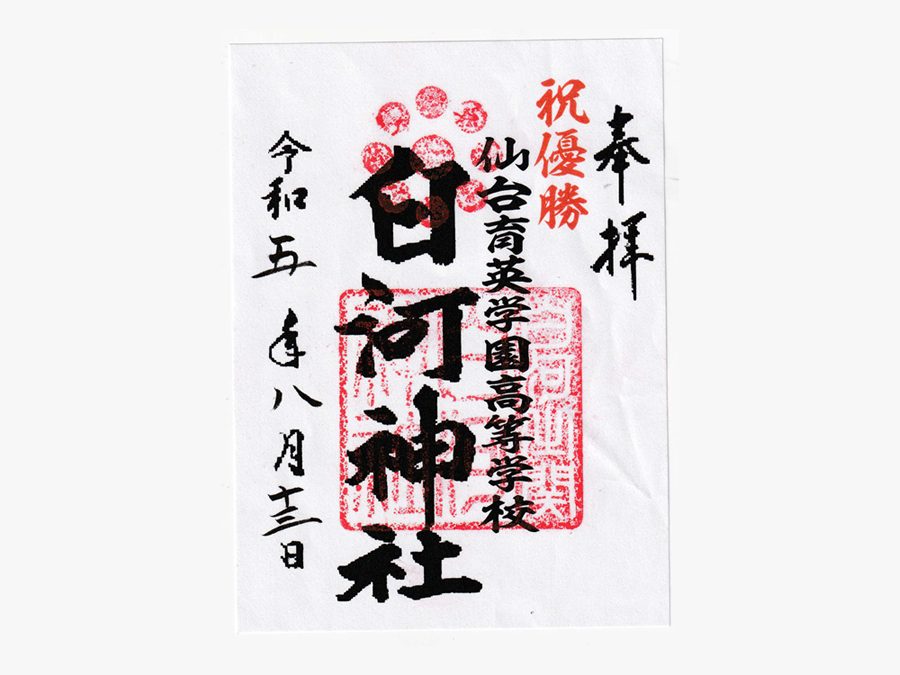 奉拝
祝優勝
仙台育英学園高等学校
白河神社
令和五年八月十三日